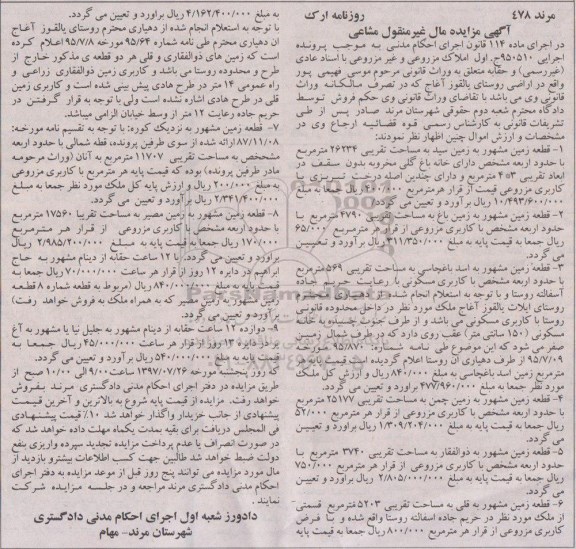 مرند ۴۷۸
روزنامه ارک
آگهی مزایده مال غیرمنقول مشاعی
در اجرای ماده ۱۱۴ قانون اجرای احکام مدنی به موجب پرونده
اجرایی ۹۵۰۵۱۰ج. اول املاک مزروعی و غیر مزروعی با اسناد عادی
(غیررسمی) و حقابه متعلق به وراث قانونی مرحوم موسی فهیمی پور
واقع در اراضی روستای یالقوز آغاج که در تصرف مالکانه وراث
قانونی وی می باشد با تقاضای وراث قانونی وی حکم فروش توسط
دادگاه محترم شعبه دوم حقوقی شهرستان مرند صادر پس از طی
تشریفات قانونی به کارشناس رسمی قوه قضائیه ارجاع وی در
مشخصات و ارزش اموال چنین اظهار نظر نمودند:
۱- قطعه زمین مشهور به زمین سید به مساحت تقریبی ۲۶۲۳۴ مترمربع
با حدود اربعه مشخص دارای خانه باغ گلی مخروبه بدون سقف در
ابعاد تقریبی ۳*۴ مترمربع و دارای چندین اصله درخت تبریزی با
کاربری مزروعی قیمت از قرار هرمترمربع ۴۰۰/۰۰۰ ریال جمعا به مبلغ
۱۰/۴۹۳/۶۰۰/۰۰۰ ریال برآورد و تعیین می گردد.
۲- قطعه زمین مشهور به زمین باغ به مساحت تقریبی ۴۷۹۰ مترمربع با
حدود اربعه مشخص با کاربری مزروعی از قرار هر مترمربع ۶۵/۰۰۰
ریال جمعا قیمت پایه به مبلغ ۳۱۱/۳۵۰/۰۰۰ ریال برآورد و تعیین
می گردد.
۳- قطعه زمین مشهور به اسد باغجاسی به مساحت تقریبی ۵۶۹ مترمربع
با حدود اربعه مشخص با کاربری مسکونی با رعایت حریم جاده
آسفالته روستا و با توجه به استعلام انجام شده از دهیاری محترم
روستای ایلات یالقوز آغاج ملک مورد نظر در داخل محدوده قانونی
روستا با کاربری مسکونی می باشد و از طرف جنوب چسبیده به خانه
مسکونی (۱۵۰ سانتی متر) عقب روی دارد که در طرف شمال زمین
صفر می شود که این موضوع طی نامه شماره: ۹۵/۸۷۰ مورخه
۹۵/۷/۰۹ از طرف دهیاری آن روستا اعلام گردیده است قیمت پایه هر
مترمربع زمین اسد باغجاسی به مبلغ ۸۴۰/۰۰۰ ریال و ارزش کل ملک
مورد نظر جمعا به مبلغ ۴۷۷/۹۶۰/۰۰۰ برآورد و تعیین می گردد.
۴- قطعه زمین مشهور به زمین چمن به مساحت تقریبی ۲۵۱۷۷ مترمربع
با حدود اربعه مشخص با کاربری مزروعی از قرار هر مترمربع ۵۲/۰۰۰
ریال جمعا قیمت پایه به مبلغ ۱/۳۰۹/۲۰۴/۰۰۰ ریال برآورد و تعیین
می گردد.
۵- قطعه زمین مشهور به ذوالفقار به مساحت تقریبی ۳۷۴۰ مترمربع با
حدود اربعه مشخص با کاربری مزروعی از قرار هر مترمربع ۷۵۰/۰۰۰
ریال جمعا قیمت پایه به مبلغ ۲/۸۰۵/۰۰۰/۰۰۰ ریال برآورد و تعیین
می گردد.
۶- قطعه زمین مشهور به قلی به مساحت تقریبی ۵۲۰۳ مترمربع قسمتی
از ملک مورد نظر در حریم جاده آسفالته روستا واقع شده و با فرض
کاربری مزروعی از قرار هر مترمربع ۸۰۰/۰۰۰ ریال جمعا به قیمت پایه
به مبلغ ۴/۱۶۲/۴۰۰/۰۰۰ ریال براورد و تعیین می گردد.
با توجه به استعلام انجام شده از دهیاری محترم روستای یالقوز آغاج
آن دهیاری محترم طی نامه شماره ۹۵/۶۴ مورخه ۹۵/۷/۸ اعلام کرده
است که زمین های ذوالفقاری و قلی هر دو قطعه ی مذکور خارج از
طرح و محدوده روستا می باشد و کاربری زمین ذوالفقاری زراعی و
راه عمومی ۱۴ متر در طرح هادی پیش بینی شده است و کاربری زمین
قلی در طرح هادی اشاره نشده است ولی با توجه به قرار گرفتن در
حریم جاده رعایت ۱۲ متر از وسط خیابان الزامی میباشد.
۷- قطعه زمین مشهور به نزدیک کوره: با توجه به تقسیم نامه مورخه:
۸۷/۱۱/۰۸ ارائه شده از سوی طرفین پرونده، قطه شمالی با حدود اربعه
مشخص به مساحت تقریبی ۱۱۷۰۷ مترمربع به آنان (وراث مرحومه
مادر طرفین پرونده) بوده که قیمت پایه هر مترمربع با کاربری مزروعی
به مبلغ ۲۰۰/۰۰۰ ریال و ارزش پایه کل ملک مورد نظر جمعا به مبلغ
۲/۳۴۱/۴۰۰/۰۰۰ ریال برآورد و تعیین می گردد.
۸- قطعه زمین مشهور به زمین مصیر به مساحت تقریبا ۱۷۵۶۰ مترمربع
با حدود اربعه مشخص با کاربری مزروعی از قرار هر مترمربع
۱۷۰/۰۰۰ ریال جمعا به قیمت پایه به مبلغ ۲/۹۸۵/۲۰۰/۰۰۰ ریال
برآورد و تعیین می گردد. با ۱۲ ساعت حقابه از دینام مشهور به حاج
ابراهیم در دایره ۱۲ روز از قرار هر ساعت ۷۰/۰۰۰/۰۰۰ ریال جمعا به
قیمت پایه به مبلغ ۸۴۰/۰۰۰/۰۰۰ ریال (مربوط به قطعه شماره ۸ قطعه
زمین مشهور به زمین مصیر که به همراه ملک به فروش خواهد رفت)
برآورد و تعیین می گردد.
۹- دوازده ۱۲ ساعت حقابه از دینام مشهور به جلیل نیا یا مشهور به آغ
یر در دایره ۱۳ روز از قرار هر ساعت ۴۵/۰۰۰/۰۰۰ ریال جمعا به
قیمت پایه به مبلغ ۵۴۰/۰۰۰/۰۰۰ ریال برآورد و تعیین می گردد.
که روز پنجشنبه مورخه ۱۳۹۷/۰۷/۲۶ ساعت ۹/۰۰ الی ۱۰/۰۰ صبح از
طریق مزایده در دفتر اجرای احکام مدنی دادگستری مرند بفروش
خواهد رفت. مزایده از قیمت پایه شروع به بالاترین و آخرین قیمت
پیشنهادی از جانب خریدار واگذار خواهد شد ۱۰٪ قیمت پیشنهادی
فی المجلس دریافت برای بقیه بمدت یکماه مهلت داده خواهد شد که
در صورت انصراف یا عدم پرداخت مزایده تجدید سپرده واریزی بنفع
دولت ضبط خواهد شد طالبین جهت کسب اطلاعات بیشتر و بازدید از
مال مورد مزایده می توانند پنج روز قبل از موعد مزایده به دفتر اجرای
احکام مدنی دادگستری مرند مراجعه و در جلسه مزایده شرکت
نمایند.
دادورز شعبه اول اجرای احکام مدنی دادگستری
شهرستان مرند- مهام